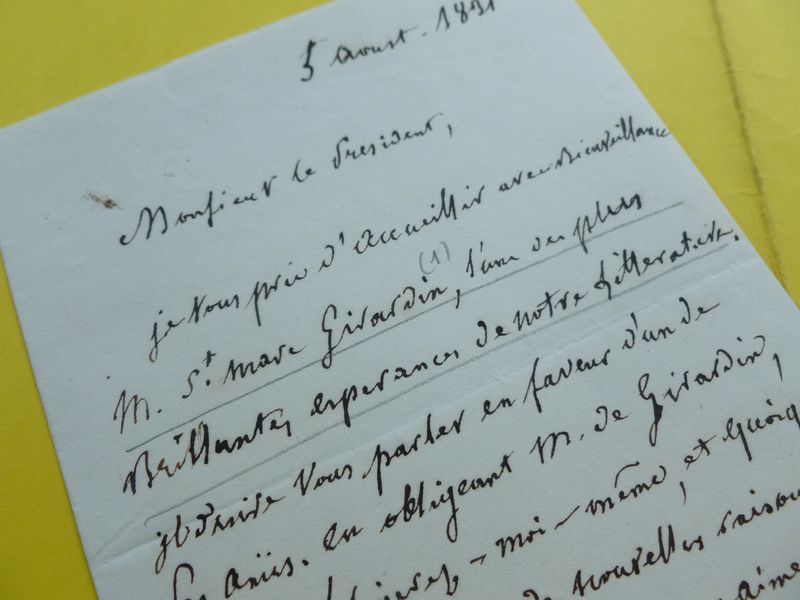 5 Aoust. 1831
Monsieur le President,
je vous prie d'accueillir avec Bienveillance
(1)
M. St. Marc Girardin, l'une des plus
Brillantes esperances de notre litterature.
il desire vous parler en faveur d'un de
ses amis. en obligeant M. de Girardin,
moi-même, et quoiq
de nouvelles raisons
aime